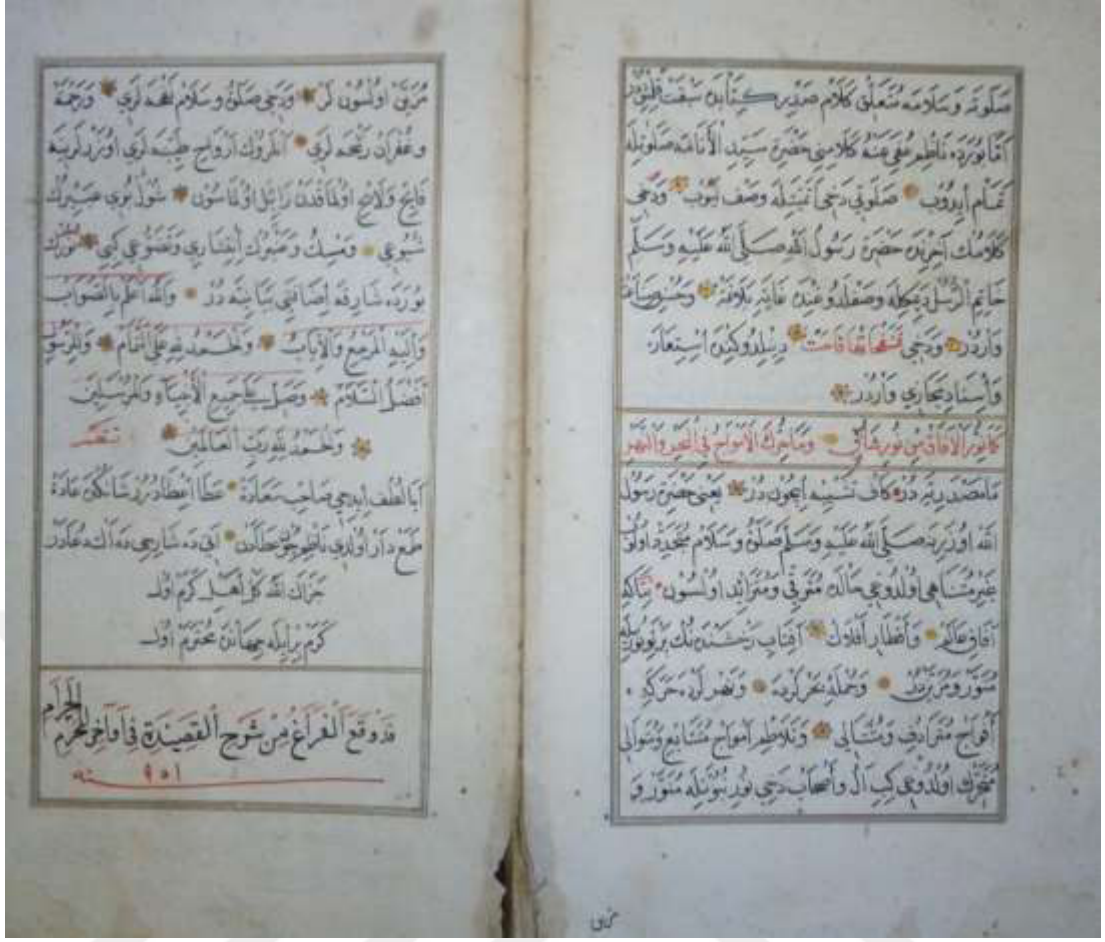 صلوته وسلامه متعلق كلام صدر كتابده سبقت قلنمشدر
امّا بوراده ناظم عفى عنه كلامنى حضرت سيّد الأنامه صلوتله
تمام ايدوب صلوتى دخى وصف ايوب ودخى
كلامك آخرنده حضرت رسول الله صلّى الله عليه وسلّم
خاتم الرّسل وعندن غايتده بلاغت وحسن
واردر ودخى نفحاتها فاحت دينلدوكندن استعاره
واسناد مجازى واردر
كانوّر الافاق من نور شارق وماحرّك الامواج فى البحر والنهر
ما مصدريّه در كاف تشبيه ايچون در يعنى حضرت رسول
الله اوزرينه صلّى الله عليه وسلّم صلوة وسلام متجدد اولوب
غير متناهى اولدوغى حالده مترقّى ومتزايد اولسون
آفاق عالم واقطار افلاك آفتاب رخشنده نك پرتو نوريله
منوّر ومزيّن در وجمله بحرلرده ونهرلرده حركت
افواج مترادف ومتتالى وتلاطم امواج متتابع ومتوالى
متحرّك اولدوغى كبى آل واصحاب دخى نور نبوّتله منوّر و
مزين
مزيّن اولسون لر ودخى صلوة وسلام نفحه لرى ورحمة
وغفران رايحه لرى انلروك ارواح طيّبه لرى اوزرلرينه
فايح ولايح اولمقدن زايل اولماسون شول بوى عبيرك
شيوعى ومسك وعنبرك انتشارى وتضوّعى كبى نورك
بورده شارقه اضافتى بيانيّه در والله اعلم بالصواب
واليه المرجع والاياب والحمد لله على التمام وللرسول
افضل السّلام وصل على جميع الأنبياء والمرسلين
والحمد لله ربّ العالمين
ايا لطف ايديجى صاحب سعادة عطا اعطادرر شانكده عادة
طمع دار اولدى ناظم انى ده شارحى ده آكه دعادن
جزاك الله كل اهل كرم اول
كرم برله جهانده محترم اول
قد وقع الفراغ من شرح القصيدة فى اواخر المحرم الحرام
سنه ٩٥١